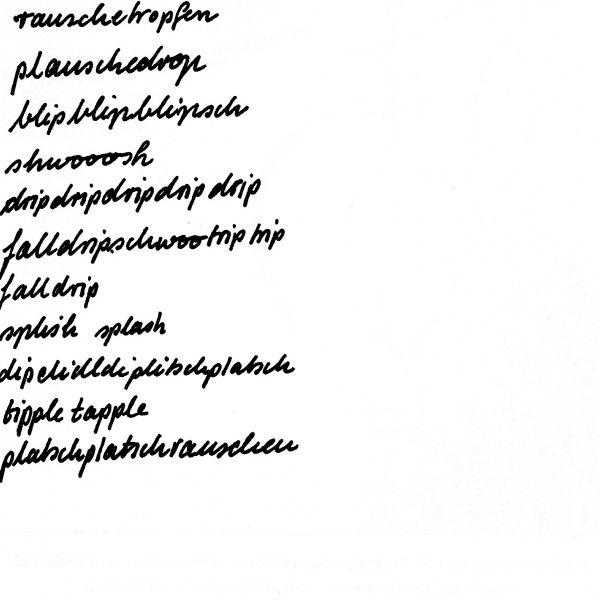 rauschetropfen
plauschedrop
blipblipblipsch
shwooosh
dripdripdripdrip drip
falldripschwootrip trip
falldrip
splish splash
dipdidldiplitschplatsch
tipple tapple
platschplatschrauschen